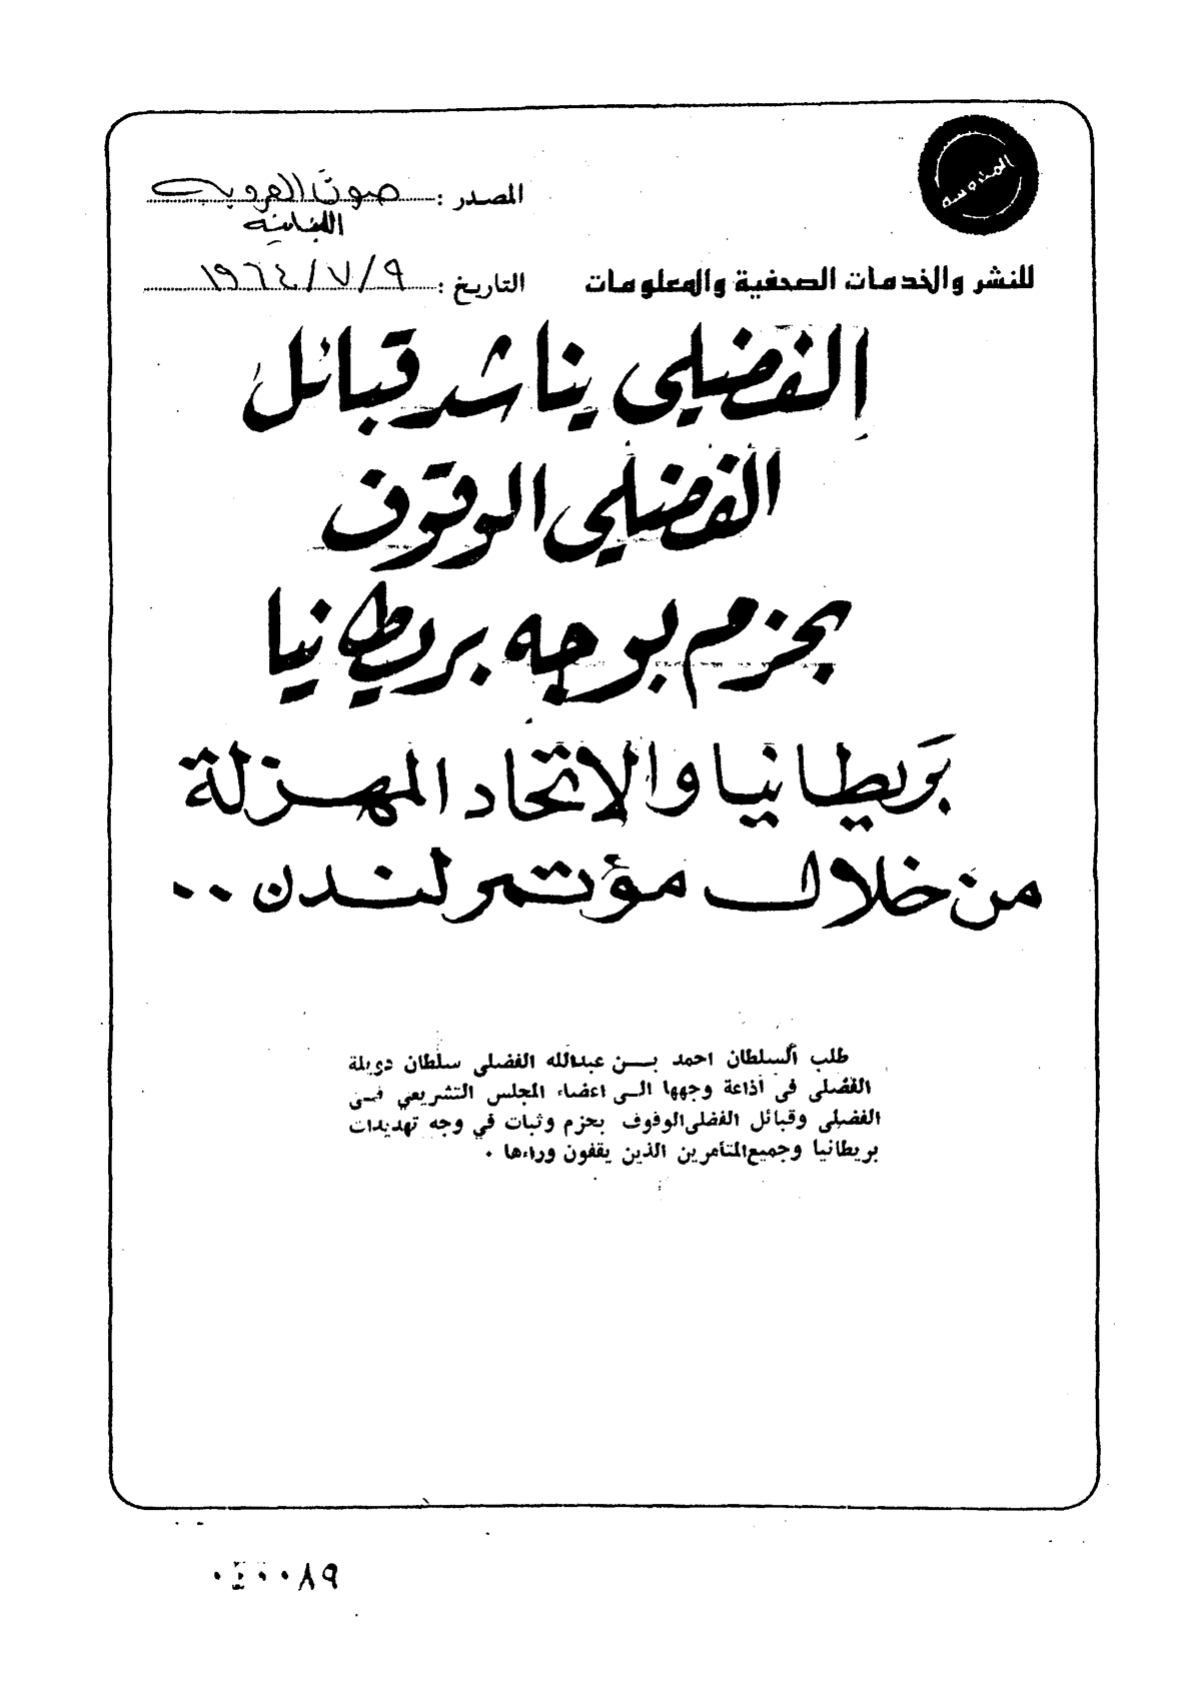 المحروسة
المصدر : صوت العروبه
اللبنانيه
للنشر والخدمات الصحفية والمعلومات
التاريخ : ١٩٦٤/٧/٩
الفضلي يناشد قبائل
الفضلي الوقوف
بحزم بوجه بريطانيا
بريطانيا والاتحاد المهزلة
من خلال مؤتمر لندن ..
طلب السلطان احمد بن عبدالله الفضلي سلطان دويلة
الفضلي في اذاعة وجهها الى اعضاء المجلس التشريعي في
الفضلي وقبائل الفضلي الوقوف بحزم وثبات في وجه تهديدات
بريطانيا وجميع المتآمرين الذين يقفون وراءها .